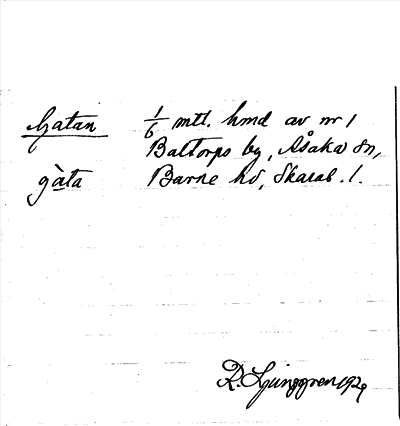 Gatan 1/6 mtl. hmd av nr 1
Baltorps by, Åsaka sn,
gàta Barne hd, Skarab. l.
R. Ljunggren 1929